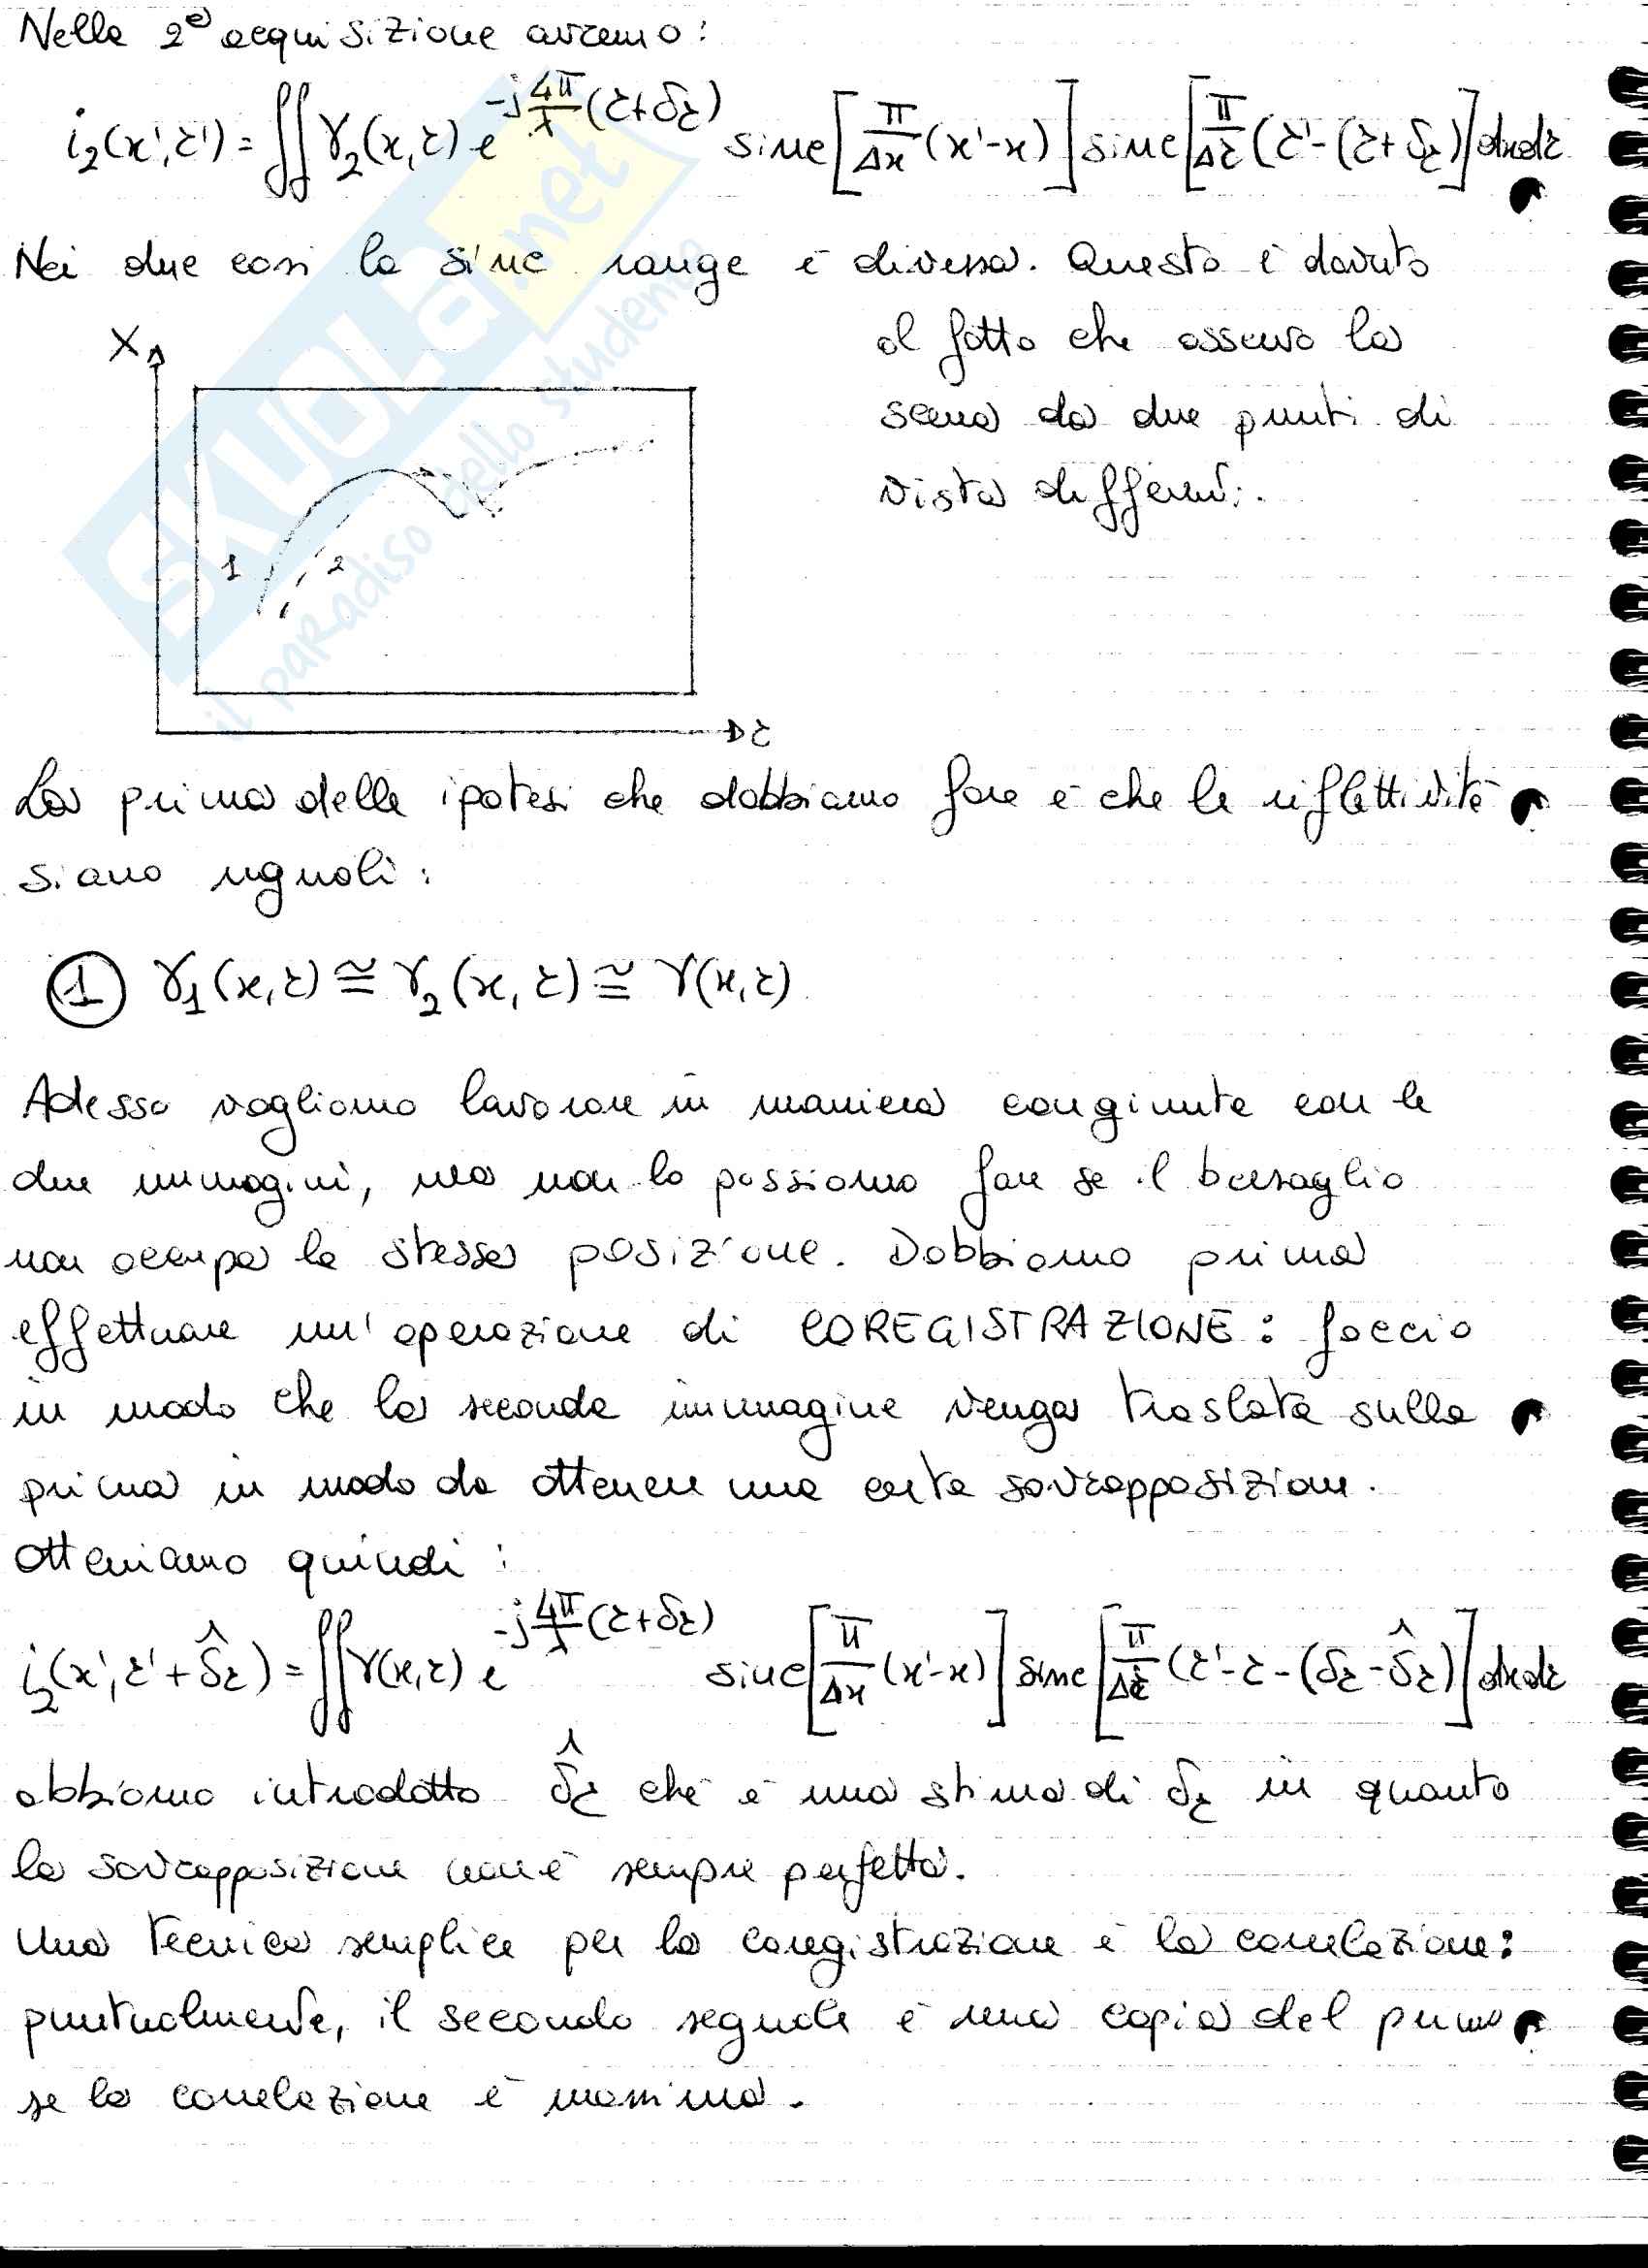 Nella 2ª acquisizione avremo:
i₂(x',r') = ∬ γ₂(x,r) e^{-j 4π/λ (r+δr)} sinc[π/Δx (x'-x)] sinc[π/Δr (r'-(r+δr)] dxdr
Nei due casi la sinc range è diversa. Questo è dovuto
al fatto che osservo la
scena da due punti di
vista differenti.
X
1 2
r
La prima delle ipotesi che dobbiamo fare è che le riflettività
siano uguali:
① γ₁(x,r) ≅ γ₂(x,r) ≅ γ(x,r)
Adesso vogliamo lavorare in maniera congiunta con le
due immagini, ma non lo possiamo fare se il bersaglio
non occupa la stessa posizione. Dobbiamo prima
effettuare un'operazione di COREGISTRAZIONE: faccio
in modo che la seconda immagine venga traslata sulla
prima in modo da ottenere una certa sovrapposizione.
Otteniamo quindi:
i₂(x',r'+δ̂r) = ∬ γ(x,r) e^{-j 4π/λ (r+δr)} sinc[π/Δx (x'-x)] sinc[π/Δr (r'-r-(δr-δ̂r)] dxdr
abbiamo introdotto δ̂r che è una stima di δr in quanto
la sovrapposizione non è sempre perfetta.
Una tecnica semplice per la coregistrazione è la correlazione:
puntualmente, il secondo segnale è una copia del primo
se la correlazione è massima.
SKUOLA.net
il paradiso dello studente